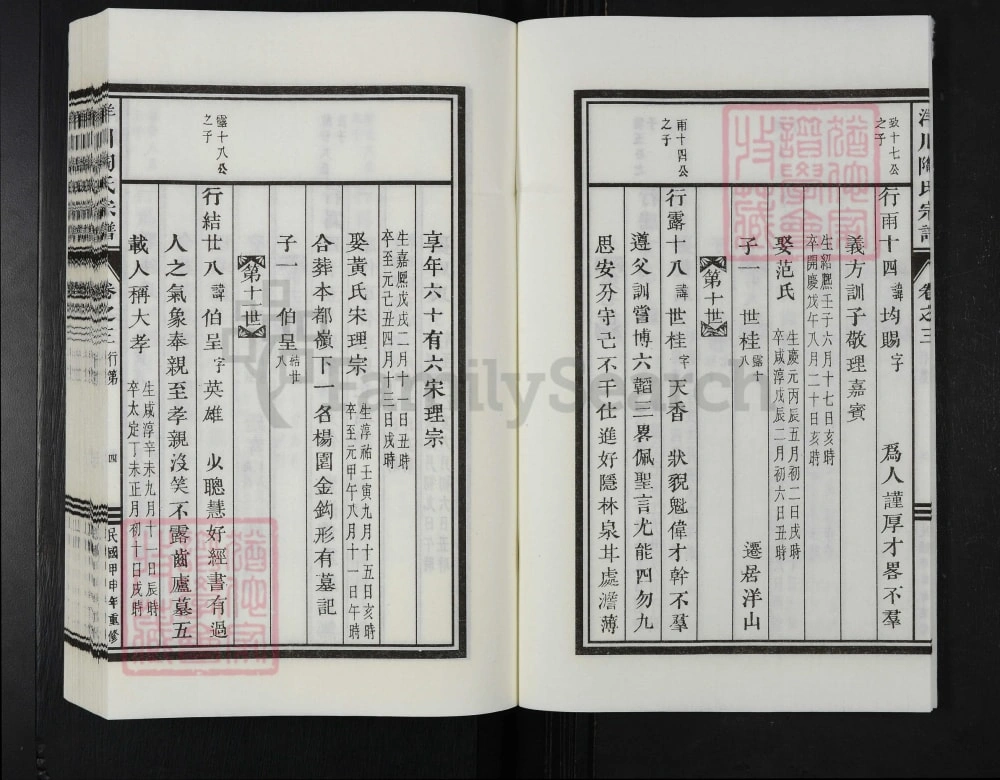 洋川陶氏宗譜 卷之三
致十七公之子
行雨十四 諱 均賜 字 為人謹厚才畧不羣
義方訓子敬理嘉賓
生紹熙壬子六月十七日亥時
卒開慶戊午八月二十日亥時
娶范氏
生慶元丙辰五月初二日戌時
卒咸淳戊辰二月初六日丑時
子一 世桂 露十八 遷居洋山
第十世
雨十四公之子
行露十八 諱 世桂 字 天香 狀貌魁偉才幹不羣
遵父訓嘗博六韜三畧佩聖言尤能四勿九
思安分守己不干仕進好隱林泉甘處澹薄
享年六十有六宋理宗
生嘉熙戊戌二月十一日丑時
卒至元己丑四月十三日戌時
娶黃氏宋理宗
生淳祐壬寅九月十五日亥時
卒至元甲午八月十一日午時
合葬本都嶺下一名楊園金鈎形有墓記
子一 伯呈 結廿八
第十一世
露十八公之子
行結廿八 諱 伯呈 字 英雄 少聰慧好經書有過
人之氣象奉親至孝親沒笑不露齒廬墓五
載人稱大孝
生咸淳辛未九月十一日辰時
卒太定丁未正月初十日戌時
洋川陶氏宗譜 卷之三 行第 四 民國甲申年重修
FamilySearch